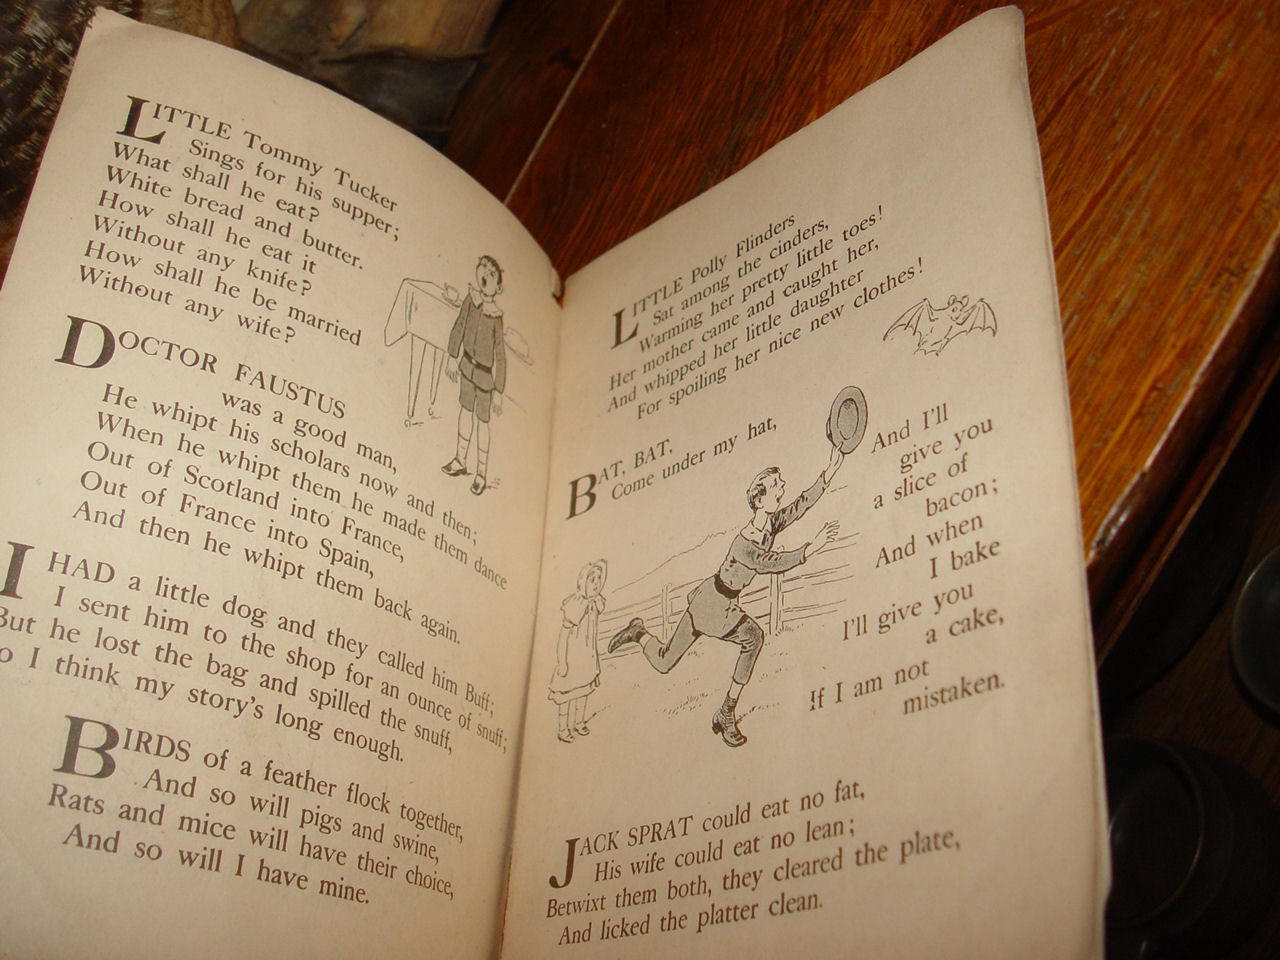 LITTLE Tommy Tucker
Sings for his supper;
What shall he eat?
White bread and butter.
How shall he eat it
Without any knife?
How shall he be married
Without any wife?
DOCTOR FAUSTUS
was a good man,
He whipt his scholars now and then;
When he whipt them he made them dance
Out of Scotland into France,
Out of France into Spain,
And then he whipt them back again.
I HAD a little dog and they called him Buff;
I sent him to the shop for an ounce of snuff;
But he lost the bag and spilled the snuff,
So I think my story's long enough.
BIRDS of a feather flock together,
And so will pigs and swine,
Rats and mice will have their choice,
And so will I have mine.
LITTLE Polly Flinders
Sat among the cinders,
Warming her pretty little toes!
Her mother came and caught her,
And whipped her little daughter
For spoiling her nice new clothes!
BAT, BAT,
Come under my hat,
And I'll
give you
a slice of
bacon;
And when
I bake
I'll give you
a cake,
If I am not
mistaken.
JACK SPRAT could eat no fat,
His wife could eat no lean;
Betwixt them both, they cleared the plate,
And licked the platter clean.